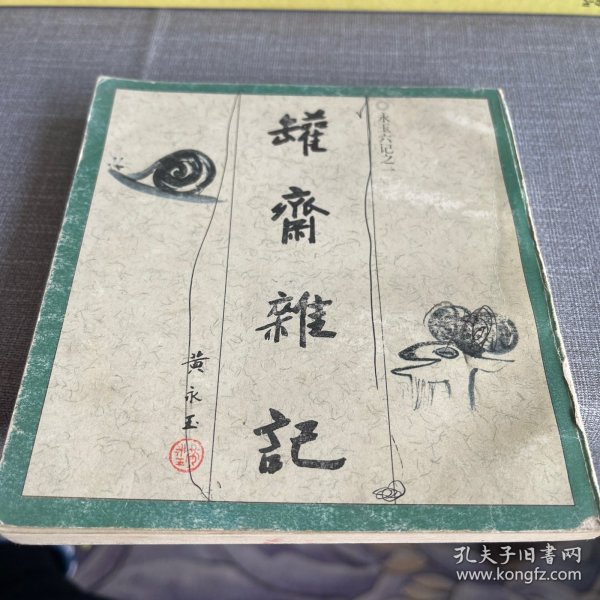 永玉六记之一
罐齋雜記
黄永玉
孔夫子旧書网
www.kongfz.com